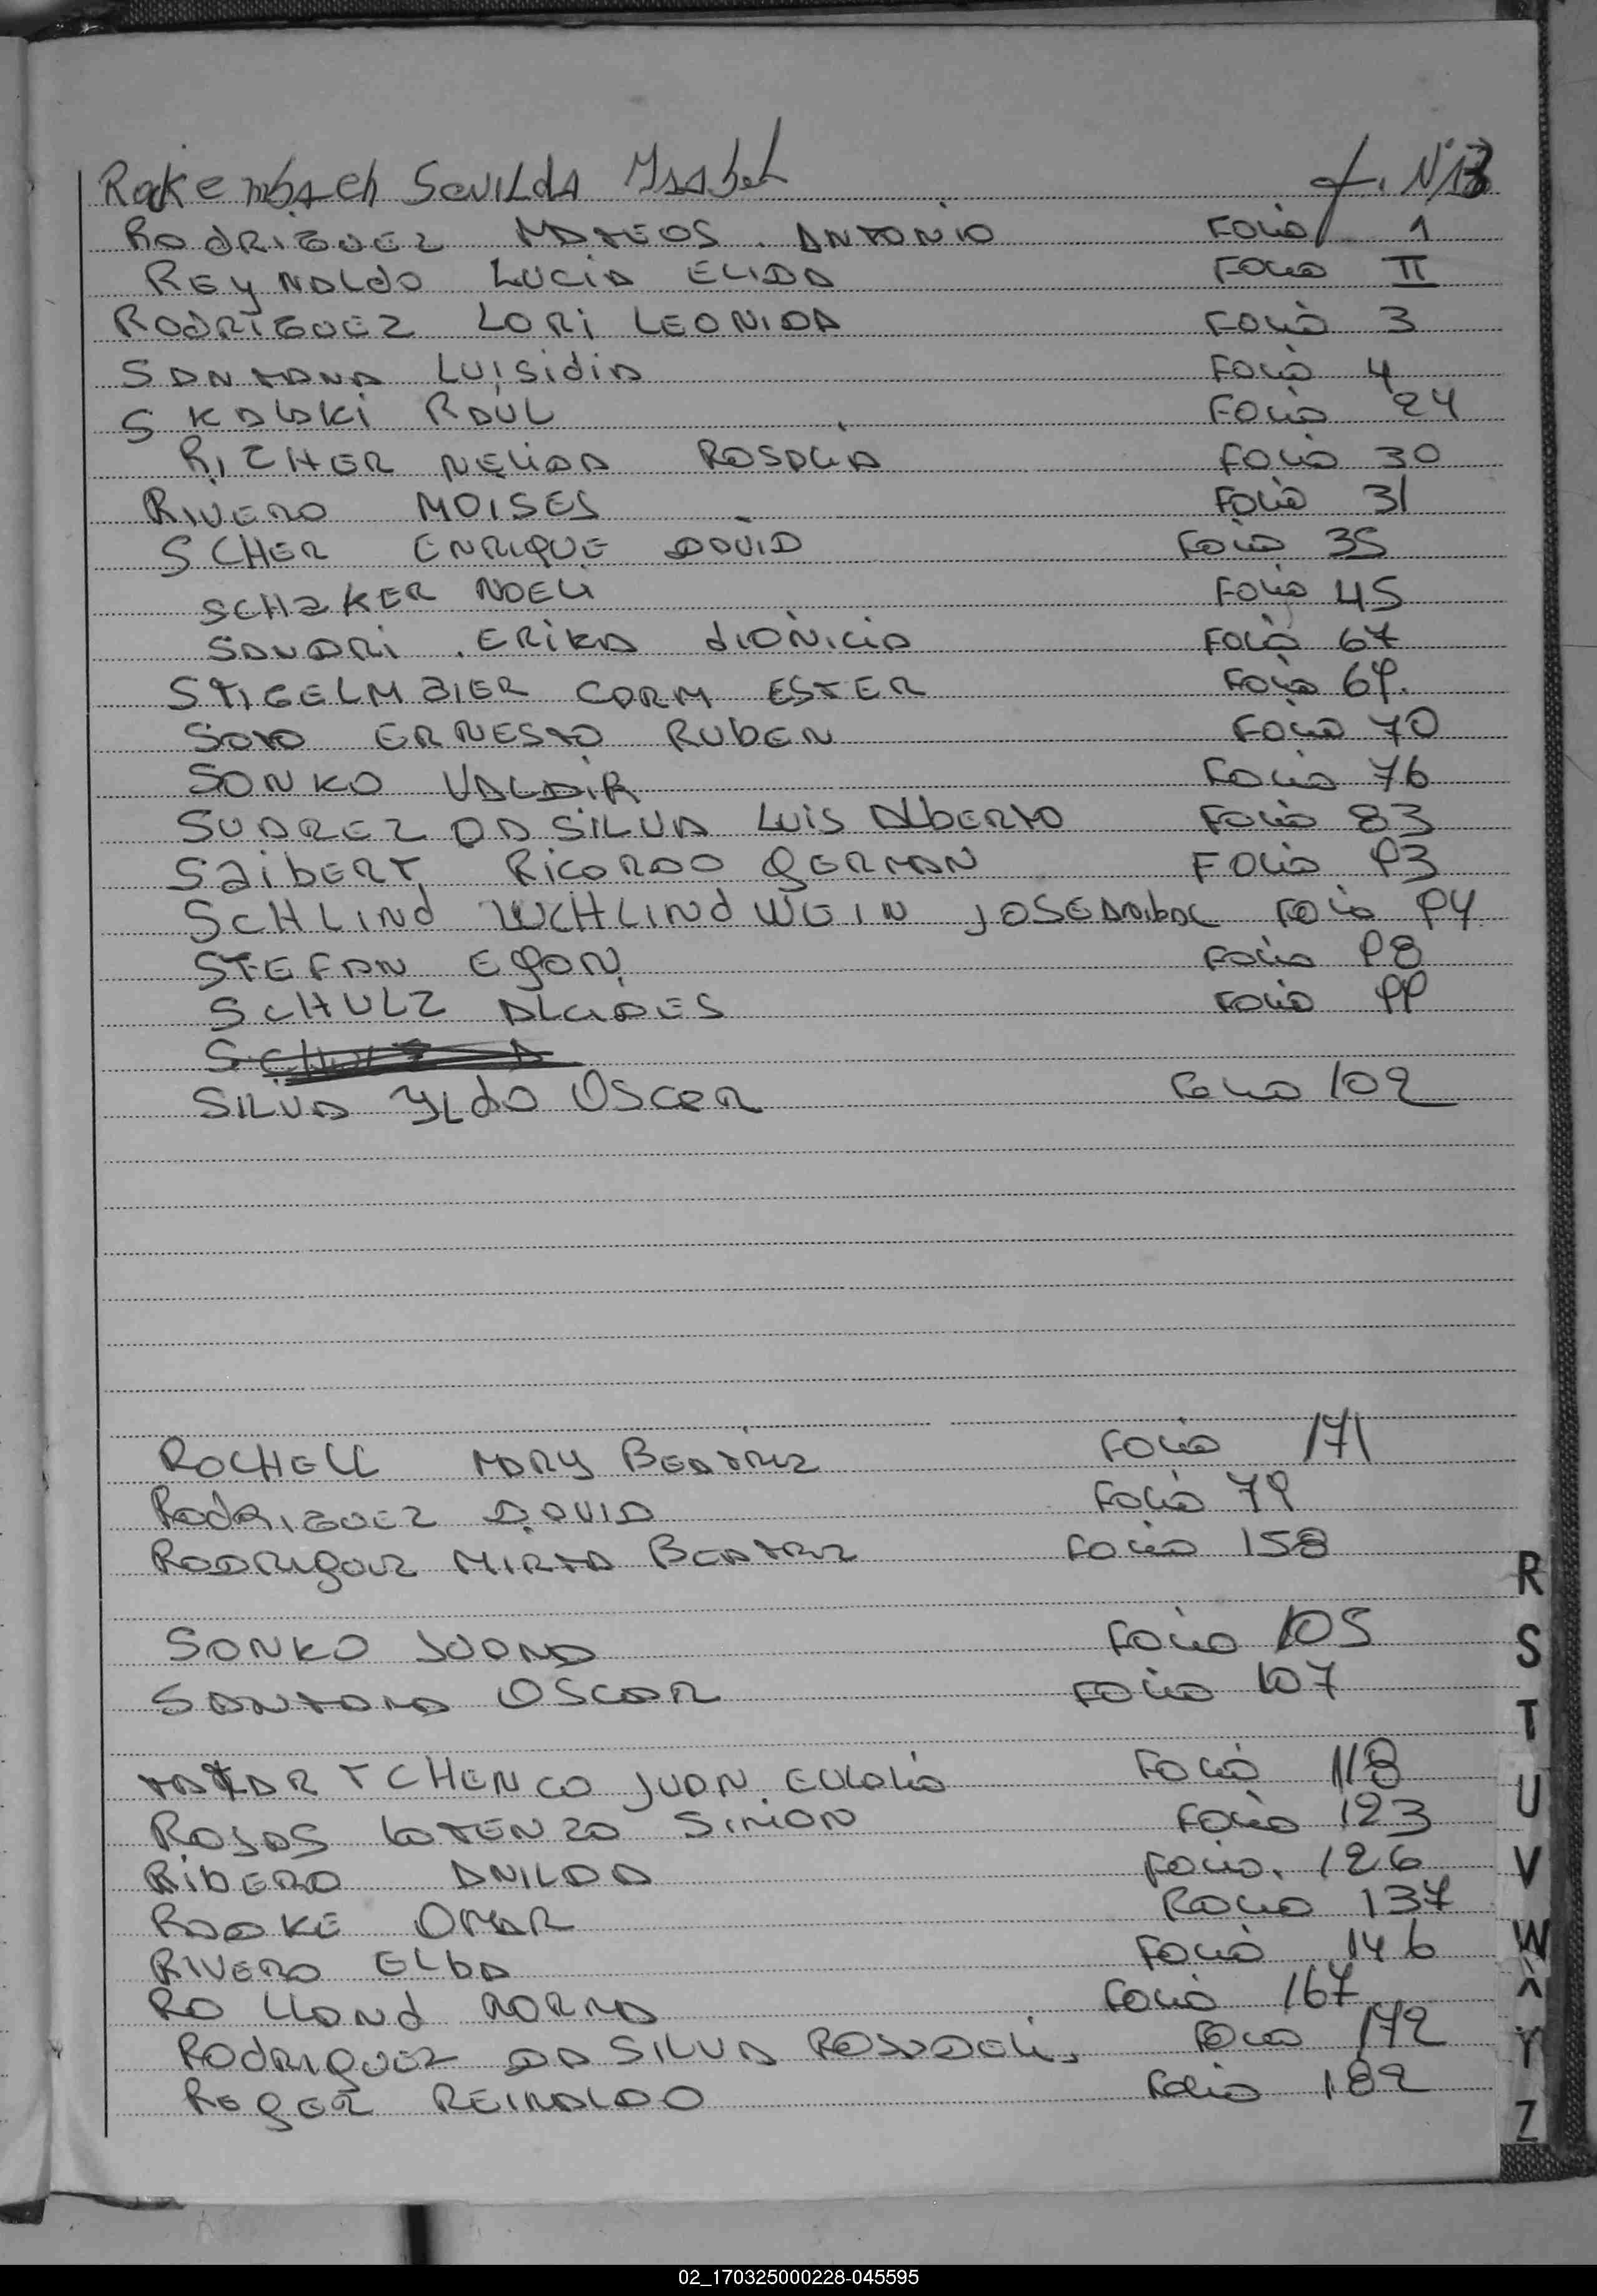 Rakembach Sevilda Ysabel f. N/13
RODRIGUEZ MATEOS. ANTONIO FOLIO 1
REYNALdo LUCIA ELIDA FOLIO II
RODRIGUEZ LORI LEONIDA FOLIO 3
SANTANA LUISIdIA FOLIO 4
SKALSKI RAUL FOLIO 24
RICHER NELIDA ROSALIA FOLIO 30
RIVERO MOISES FOLIO 31
SCHER ENRIQUE DAVID FOLIO 35
SCHaKER NOELI FOLIO 45
SANDRI. ERIKA dIONICIA FOLIO 67
STIGELMaIER CARM ESTER FOLIO 69.
SOTO ERNESTO RUbEN FOLIO 70
SONKO VALDIR FOLIO 76
SUAREZ DA SILVA LUIS ALbERTO FOLIO 83
SaibERT RICARDO GERMAN FOLIO 93
SCHLINd WEIN JOSE ANIbAL FOLIO 94
STEFAN EGON FOLIO 98
SCHULZ ALCIDES FOLIO 99
SILVA YLdO OSCAR FOLIO 102
ROCHELL MARY BEATRIZ FOLIO 171
ROdRIGUEZ DAVID FOLIO 79
RODRIGUEZ MIRTA BEATRIZ FOLIO 158
SONKO JUANA FOLIO 105
SANTANA OSCAR FOLIO 107
TCHENCO JUAN EULALIO FOLIO 118
ROJAS LORENZO SIMON FOLIO 123
RIbERO ANILDA FOLIO. 126
RAAKE OMAR FOLIO 137
RIVERO ELbA FOLIO 146
ROLLANd NORMA FOLIO 167
ROdRIGUEZ DA SILVA FOLIO 172
ROGER REINALDO FOLIO 182
R
S
T
U
V
W
X
Y
Z
02_170325000228-045595